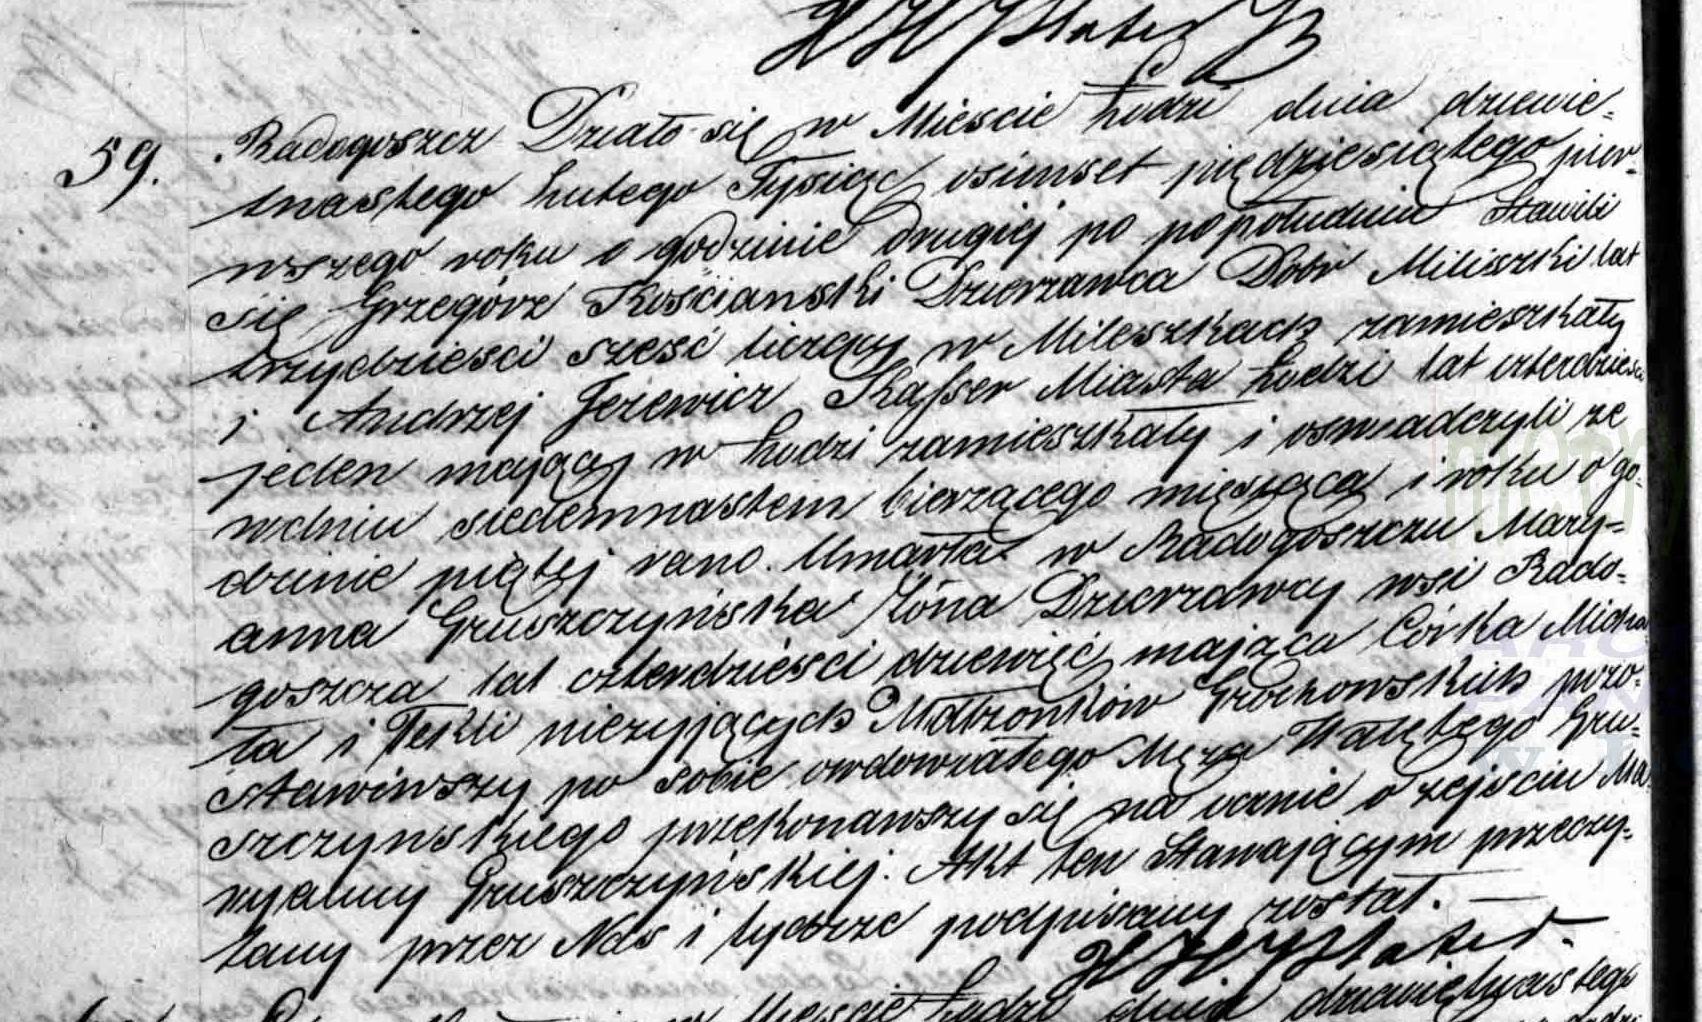 59. Radogoszcz Działo się w Mieście Łodzi dnia dziewie-
tnastego Lutego Tysiąc osimset pięćdziesiątego pier-
wszego roku o godzinie drugiej po popołudniu Stawili
się Grzegórz Kościanski Dzierzawca Dobr Miliszki lat
trzydzieści sześć liczący w Mileszkach zamieszkały
i Andrzej Jeżewicz Kasser Miasta Łodzi lat czterdzieści
jeden mający w Łodzi zamieszkały i oswiadczyli ze
wdniu siedemnastem bierzącego miesząca i roku o go-
dzinie piątej rano. Umarła w Radogoszczu Mary-
anna Gruszczyńska Żona Dzierzawcy wsi Rado-
goszcza lat czterdzieści dziewięć mająca Córka Micha
ła i Tekli nieżyjących Małżonków Grochowskich pozo-
stawiwszy po sobie owdowiałego Męża Walętego Gru-
szczyńskiego przekonawszy się na ocznie o zejściu Ma-
ryanny Gruszczyńskiej. Akt ten Stawającym przeczy-
tany przez Nas i tychże podpisany został.
w Mieście Łodzi dnia dziewiętnastego